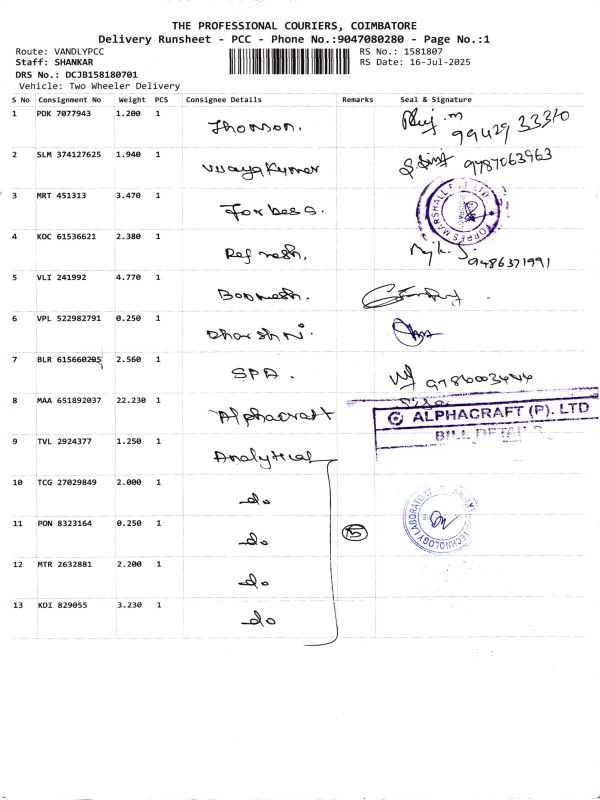 THE PROFESSIONAL COURIERS, COIMBATORE
Delivery Runsheet - PCC - Phone No.:9047080280 - Page No.:1
Route: VANDLYPCC RS No.: 1581807
Staff: SHANKAR RS Date: 16-Jul-2025
DRS No.: DCJB158180701
Vehicle: Two Wheeler Delivery
S No Consignment No Weight PCS Consignee Details Remarks Seal & Signature
1 PDK 7077943 1.200 1 Thomson. 99429 33310
2 SLM 374127625 1.940 1 Vijayakumar 9787063963
3 MRT 451313 3.470 1 Forbess. FORBES MARSHALL
4 KOC 61536621 2.380 1 9486371991
5 VLI 241992 4.770 1 Boomesh.
6 VPL 522982791 0.250 1 Dharshni.
7 BLR 615660205 2.560 1 SPA.
8 MAA 651892037 22.230 1 Alphacraft ALPHACRAFT (P). LTD
9 TVL 2924377 1.250 1 Analytical
10 TCG 27029849 2.000 1 do
11 PON 8323164 0.250 1 do 5 TECHNOLOGY LABORATO
12 MTR 2632881 2.200 1 do
13 KDI 829055 3.230 1 do